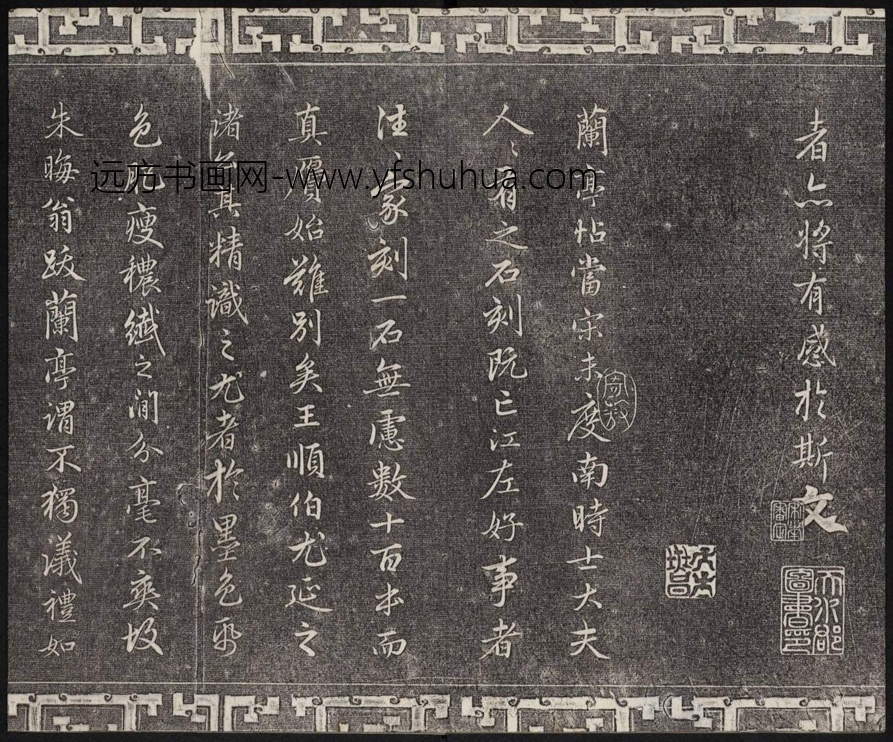 者亦將有感於斯文
天水郡圖書印
蘭亭帖當宋未度南時士大夫
人〻有之石刻既亡江左好事者
往〻家刻一石無慮數十百本而
真贋始難別矣王順伯尤延之
諸公其精識之尤者於墨色紙
色肥瘦穠纖之間分毫不爽故
朱晦翁跋蘭亭謂不獨議禮如
远方书画网-www.yfshuhua.com